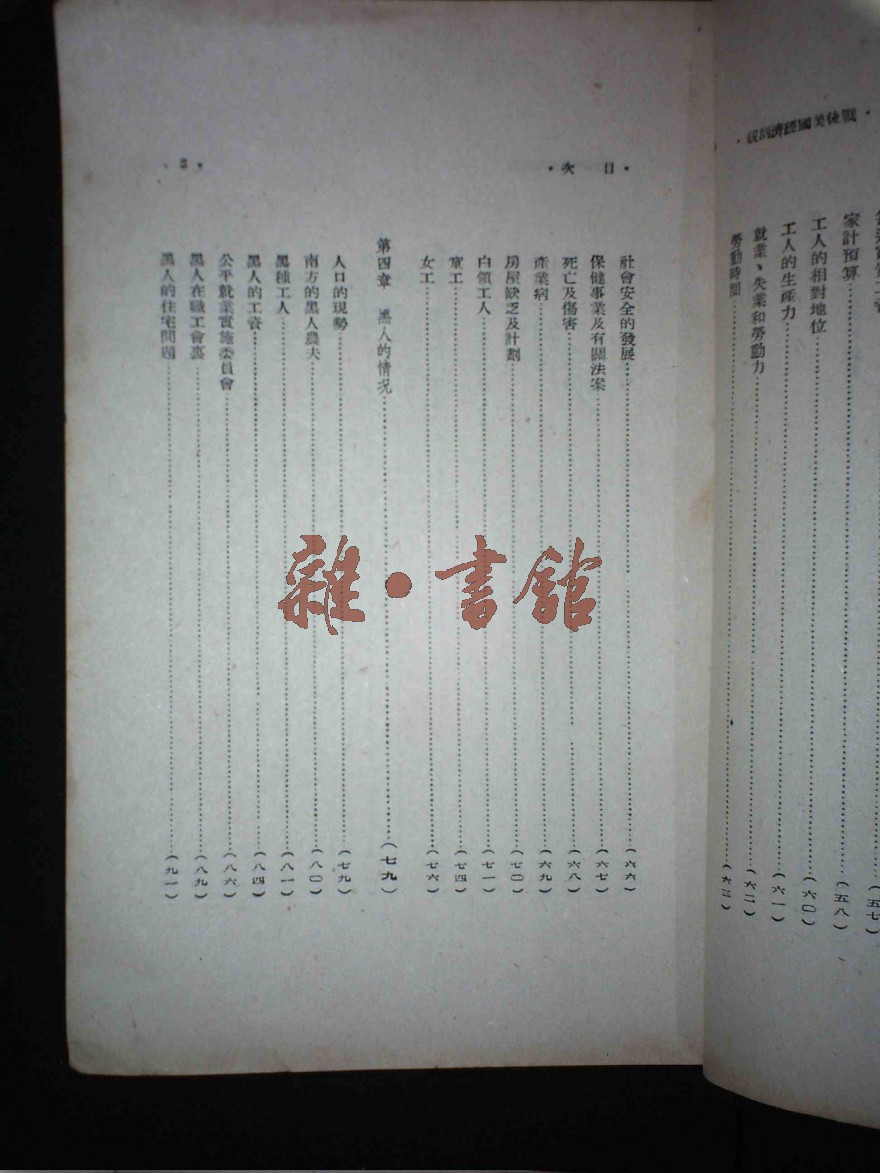 戰後美國經濟剖視
家計預算……(五八)
工人的相對地位……(六〇)
工人的生產力……(六一)
就業、失業和勞動力……(六二)
勞動時間……(六三)
·目次·
社會安全的發展……(六六)
保健事業及有關法案……(六七)
死亡及傷害……(六八)
產業病……(六九)
房屋缺乏及計劃……(七〇)
白領工人……(七一)
童工……(七四)
女工……(七六)
第四章 黑人的情況……(七九)
人口的現勢……(七九)
南方的黑人農夫……(八〇)
黑種工人……(八一)
黑人的工資……(八四)
公平就業實施委員會……(八六)
黑人在職工會裏……(八九)
黑人的住宅問題……(九一)
雜·書館